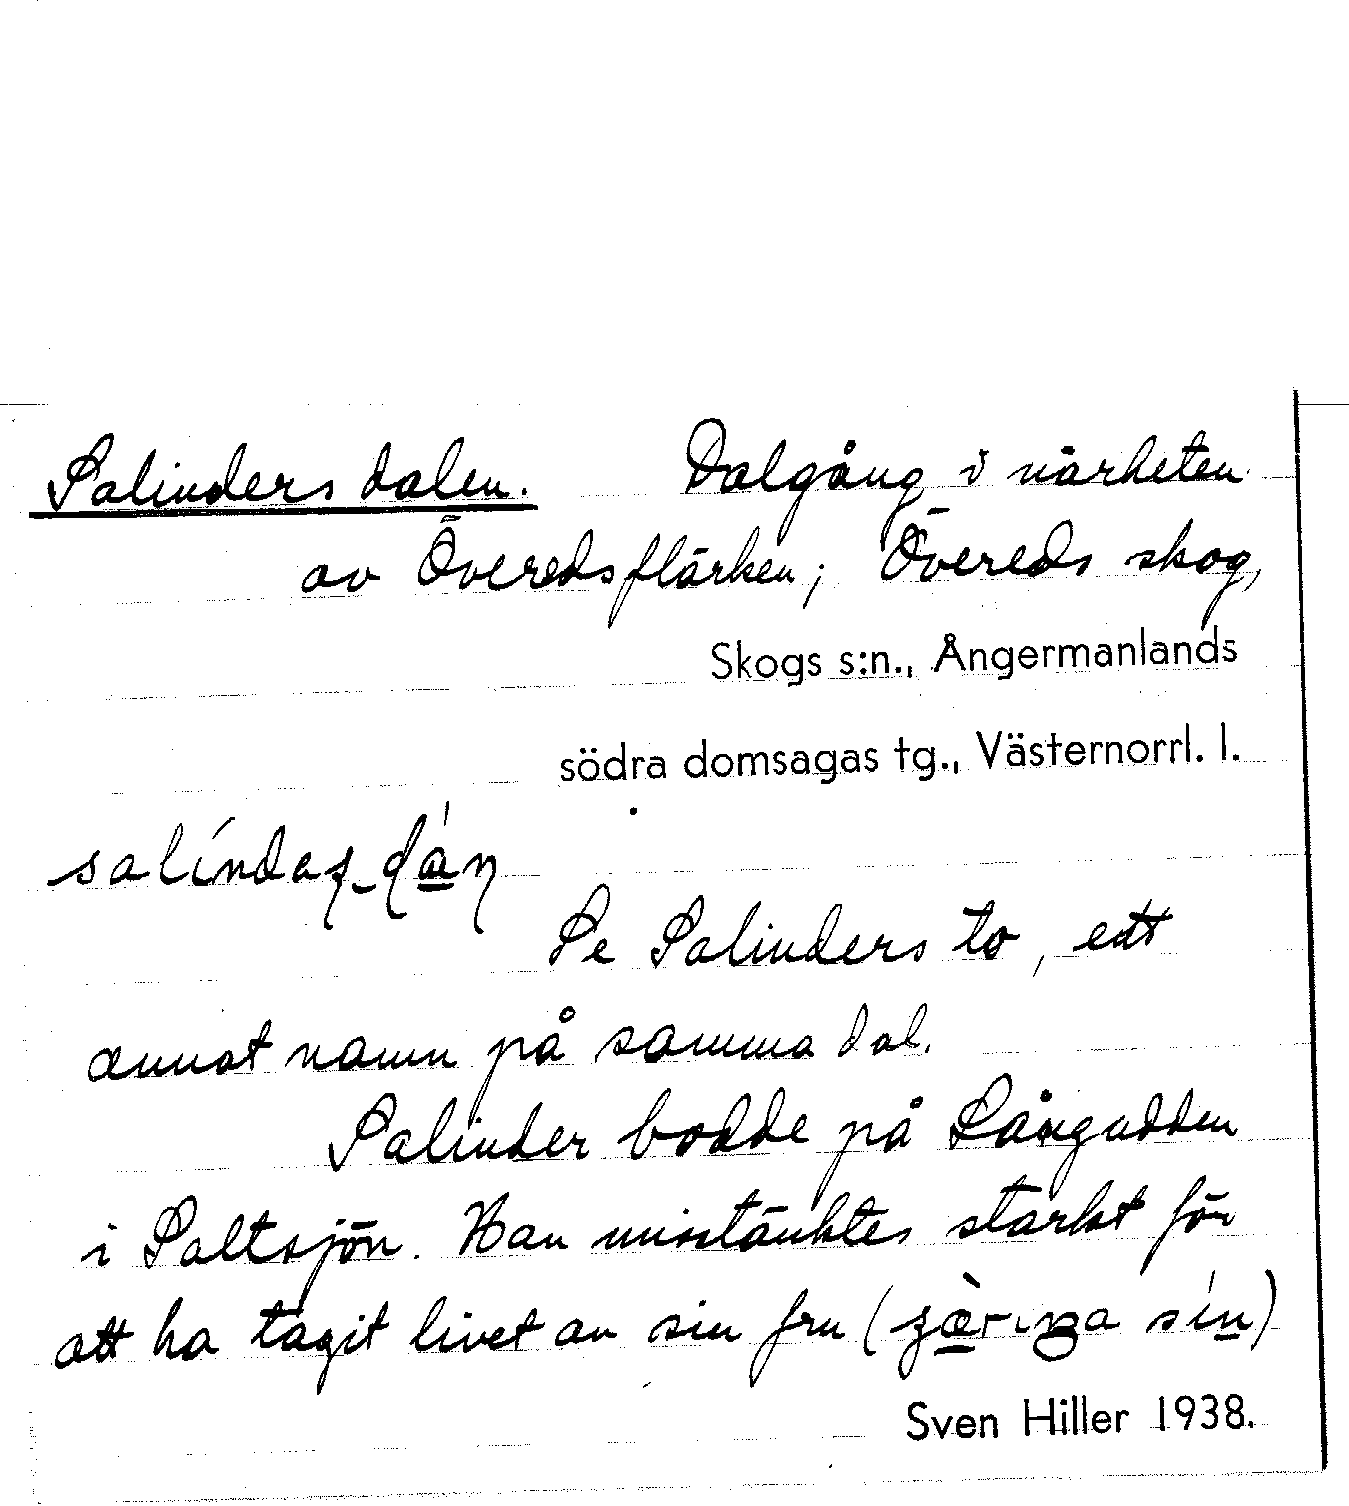 Salinders dalen. Dalgång i närheten
av Överedsflärken; Övereds skog,
Skogs s:n., Ångermanlands
södra domsagas tg., Västernorrl. l.
Se Salinders to, ett
annat namn på samma dal.
Salinder bodde på Långudden
i Saltsjön. Han misstänktes starkt för
att ha tagit livet av sin fru (
Sven Hiller 1938.